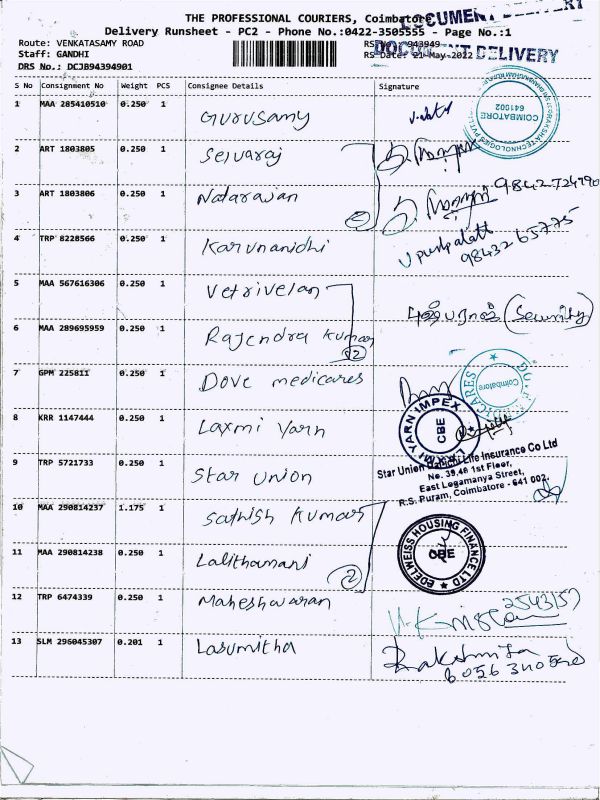 THE PROFESSIONAL COURIERS, Coimbatore
DOCUMENT DELIVERY
Delivery Runsheet - PC2 - Phone No.:0422-3505555 - Page No.:1
Route: VENKATASAMY ROAD
RS No.: 943949
DOCUMENT DELIVERY
Staff: GANDHI
RS Date: 21-May-2022
DRS No.: DCJB94394901
S No Consignment No Weight PCS Consignee Details Signature
1 MAA 285410510 0.250 1 Gurusamy
COIMBATORE 641602
2 ART 1803805 0.250 1 Selvaraj
3 ART 1803806 0.250 1 Natarajan 2
4 TRP 8228566 0.250 1 Karunanidhi
98432 65775
5 MAA 567616306 0.250 1 Vetrivelan
(Security)
6 MAA 289695959 0.250 1 Rajendra Kumar 2
7 GPM 225811 0.250 1 Dove medicares
Coimbatore
8 KRR 1147444 0.250 1 Laxmi Yarn
LAXMI YARN IMPEX CBE
9 TRP 5721733 0.250 1 Star Union
Star Union Dai-ichi Life Insurance Co Ltd
1st Floor,
East Logamanya Street,
R.S. Puram, Coimbatore - 641 002.
10 MAA 290814237 1.175 1 Sathish Kumar
EDELWEISS HOUSING FINANCE LTD CBE
11 MAA 290814238 0.250 1 Lalithamani 2
12 TRP 6474339 0.250 1 Maheshwaran
2543157
13 SLM 296045307 0.201 1 Lasumitha